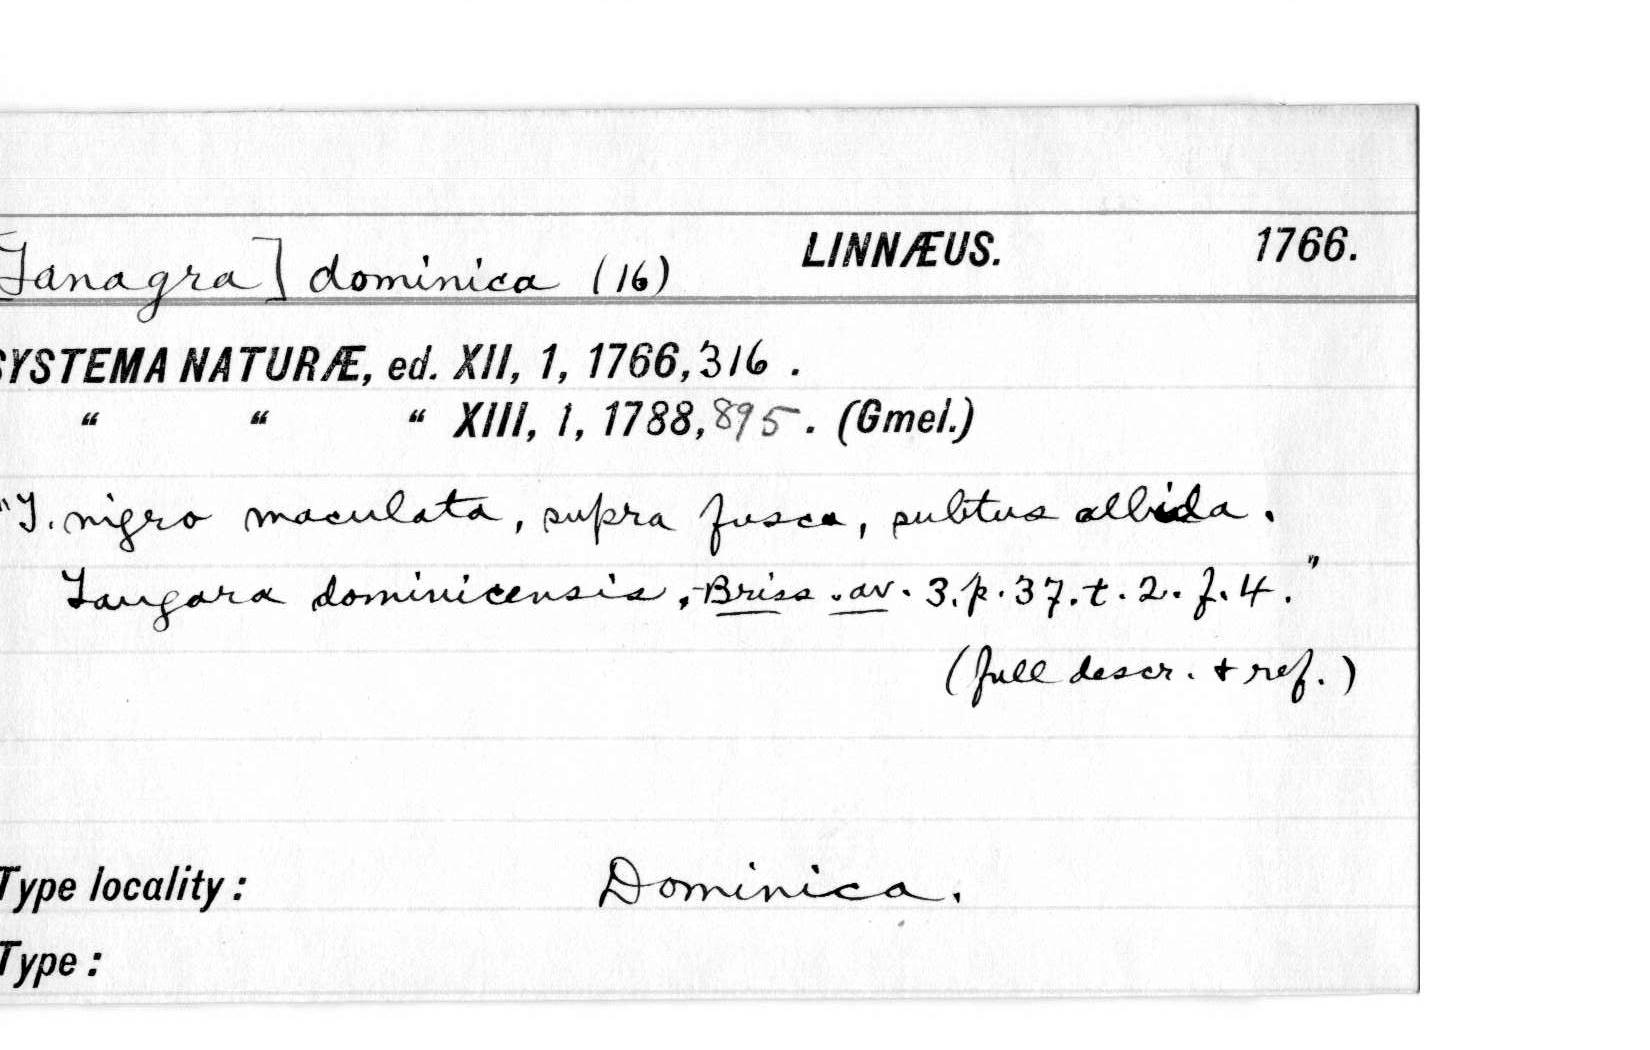 [Tanagra] dominica (16) LINNÆUS. 1766.
SYSTEMA NATURÆ, ed. XII, 1, 1766, 316.
“ “ “ XIII, 1, 1788, 895. (Gmel.)
"T. nigro maculata, supra fusca, subtus albida.
Tangara dominicensis, Briss. av. 3. p. 37. t. 2. f. 4."
(full descr. + ref.)
Type locality: Dominica.
Type: